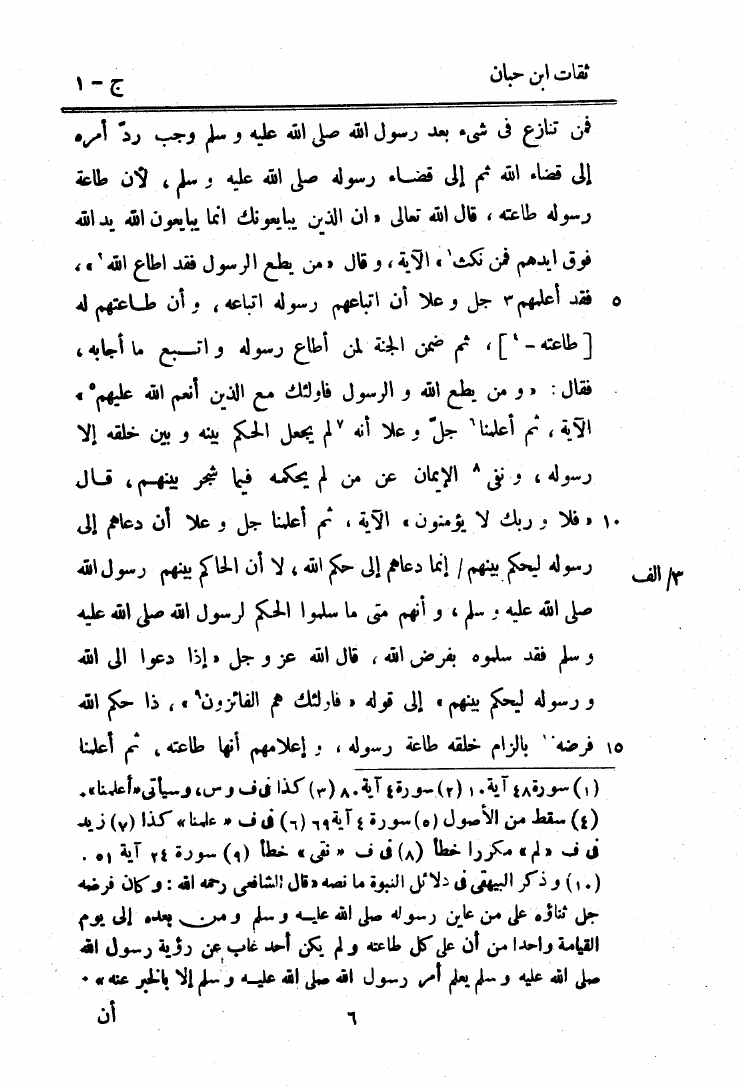 ثقات ابن حبان ج - ١
فمن تنازع فى شىء بعد رسول الله صلى الله عليه و سلم وجب ردّ أمره
إلى قضاء الله ثم إلى قضاء رسوله صلى الله عليه و سلم، لأن طاعة
رسوله طاعته، قال الله تعالى «ان الذين يبايعونك انما يبايعون الله يد الله
فوق ايدهم فمن نكث١» الآية، و قال «من يطع الرسول فقد اطاع الله٢»،
٥ فقد أعلمهم٣ جل و علا أن اتباعهم رسوله اتباعه، و أن طاعتهم له
[طاعته-٤]، ثم ضمن الجنة لمن أطاع رسوله و اتبع ما أجابه،
فقال: «و من يطع الله و الرسول فاولئك مع الذين أنعم الله عليهم٥»
الآية، ثم أعلمنا٦ جلّ و علا أنه ٧لم يجعل الحكم بينه و بين خلقه إلا
رسوله، و نفى٨ الإيمان عن من لم يحكمه فيما شجر بينهم، قال
١٠ «فلا و ربك لا يؤمنون» الآية، ثم أعلمنا جل و علا أن دعاهم إلى
رسوله ليحكم بينهم/ إنما دعاهم إلى حكم الله، لا أن الحاكم بينهم رسول الله ٣/ الف
صلى الله عليه و سلم، و أنهم متى ما سلموا الحكم لرسول الله صلى الله عليه
و سلم فقد سلموه بفرض الله، قال الله عز و جل «إذا دعوا الى الله
و رسوله ليحكم بينهم» إلى قوله «فاولئك هم الفائزون٩»، ذا حكم الله
١٥ فرضه١٠ بالزام خلقه طاعة رسوله، و إعلامهم أنها طاعته، ثم أعلمنا
(١) سورة ٤٨ آية ١٠ (٢) سورة ٤ آية ٨٠ (٣) كذا فى ف و س، و سيأتى «أعلمنا».
(٤) سقط من الأصول (٥) سورة ٤ آية ٦٩ (٦) فى ف «علمنا» كذا (٧) زيد
فى ف «لم» مكررا خطأ (٨) فى ف «نقى» خطأ (٩) سورة ٢٤ آية ٥١.
(١٠) و ذكر البيهقى فى دلائل النبوة ما نصه «قال الشافعى رحمه الله: و كان فرضه
جل ثناؤه على من عاين رسوله صلى الله عليه و سلم و من بعده إلى يوم
القيامة واحدا من أن على كل طاعته و لم يكن أحد غاب عن رؤية رسول الله
صلى الله عليه و سلم يعلم أمر رسول الله صلى الله عليه و سلم إلا بالخبر عنه».
٦ أن